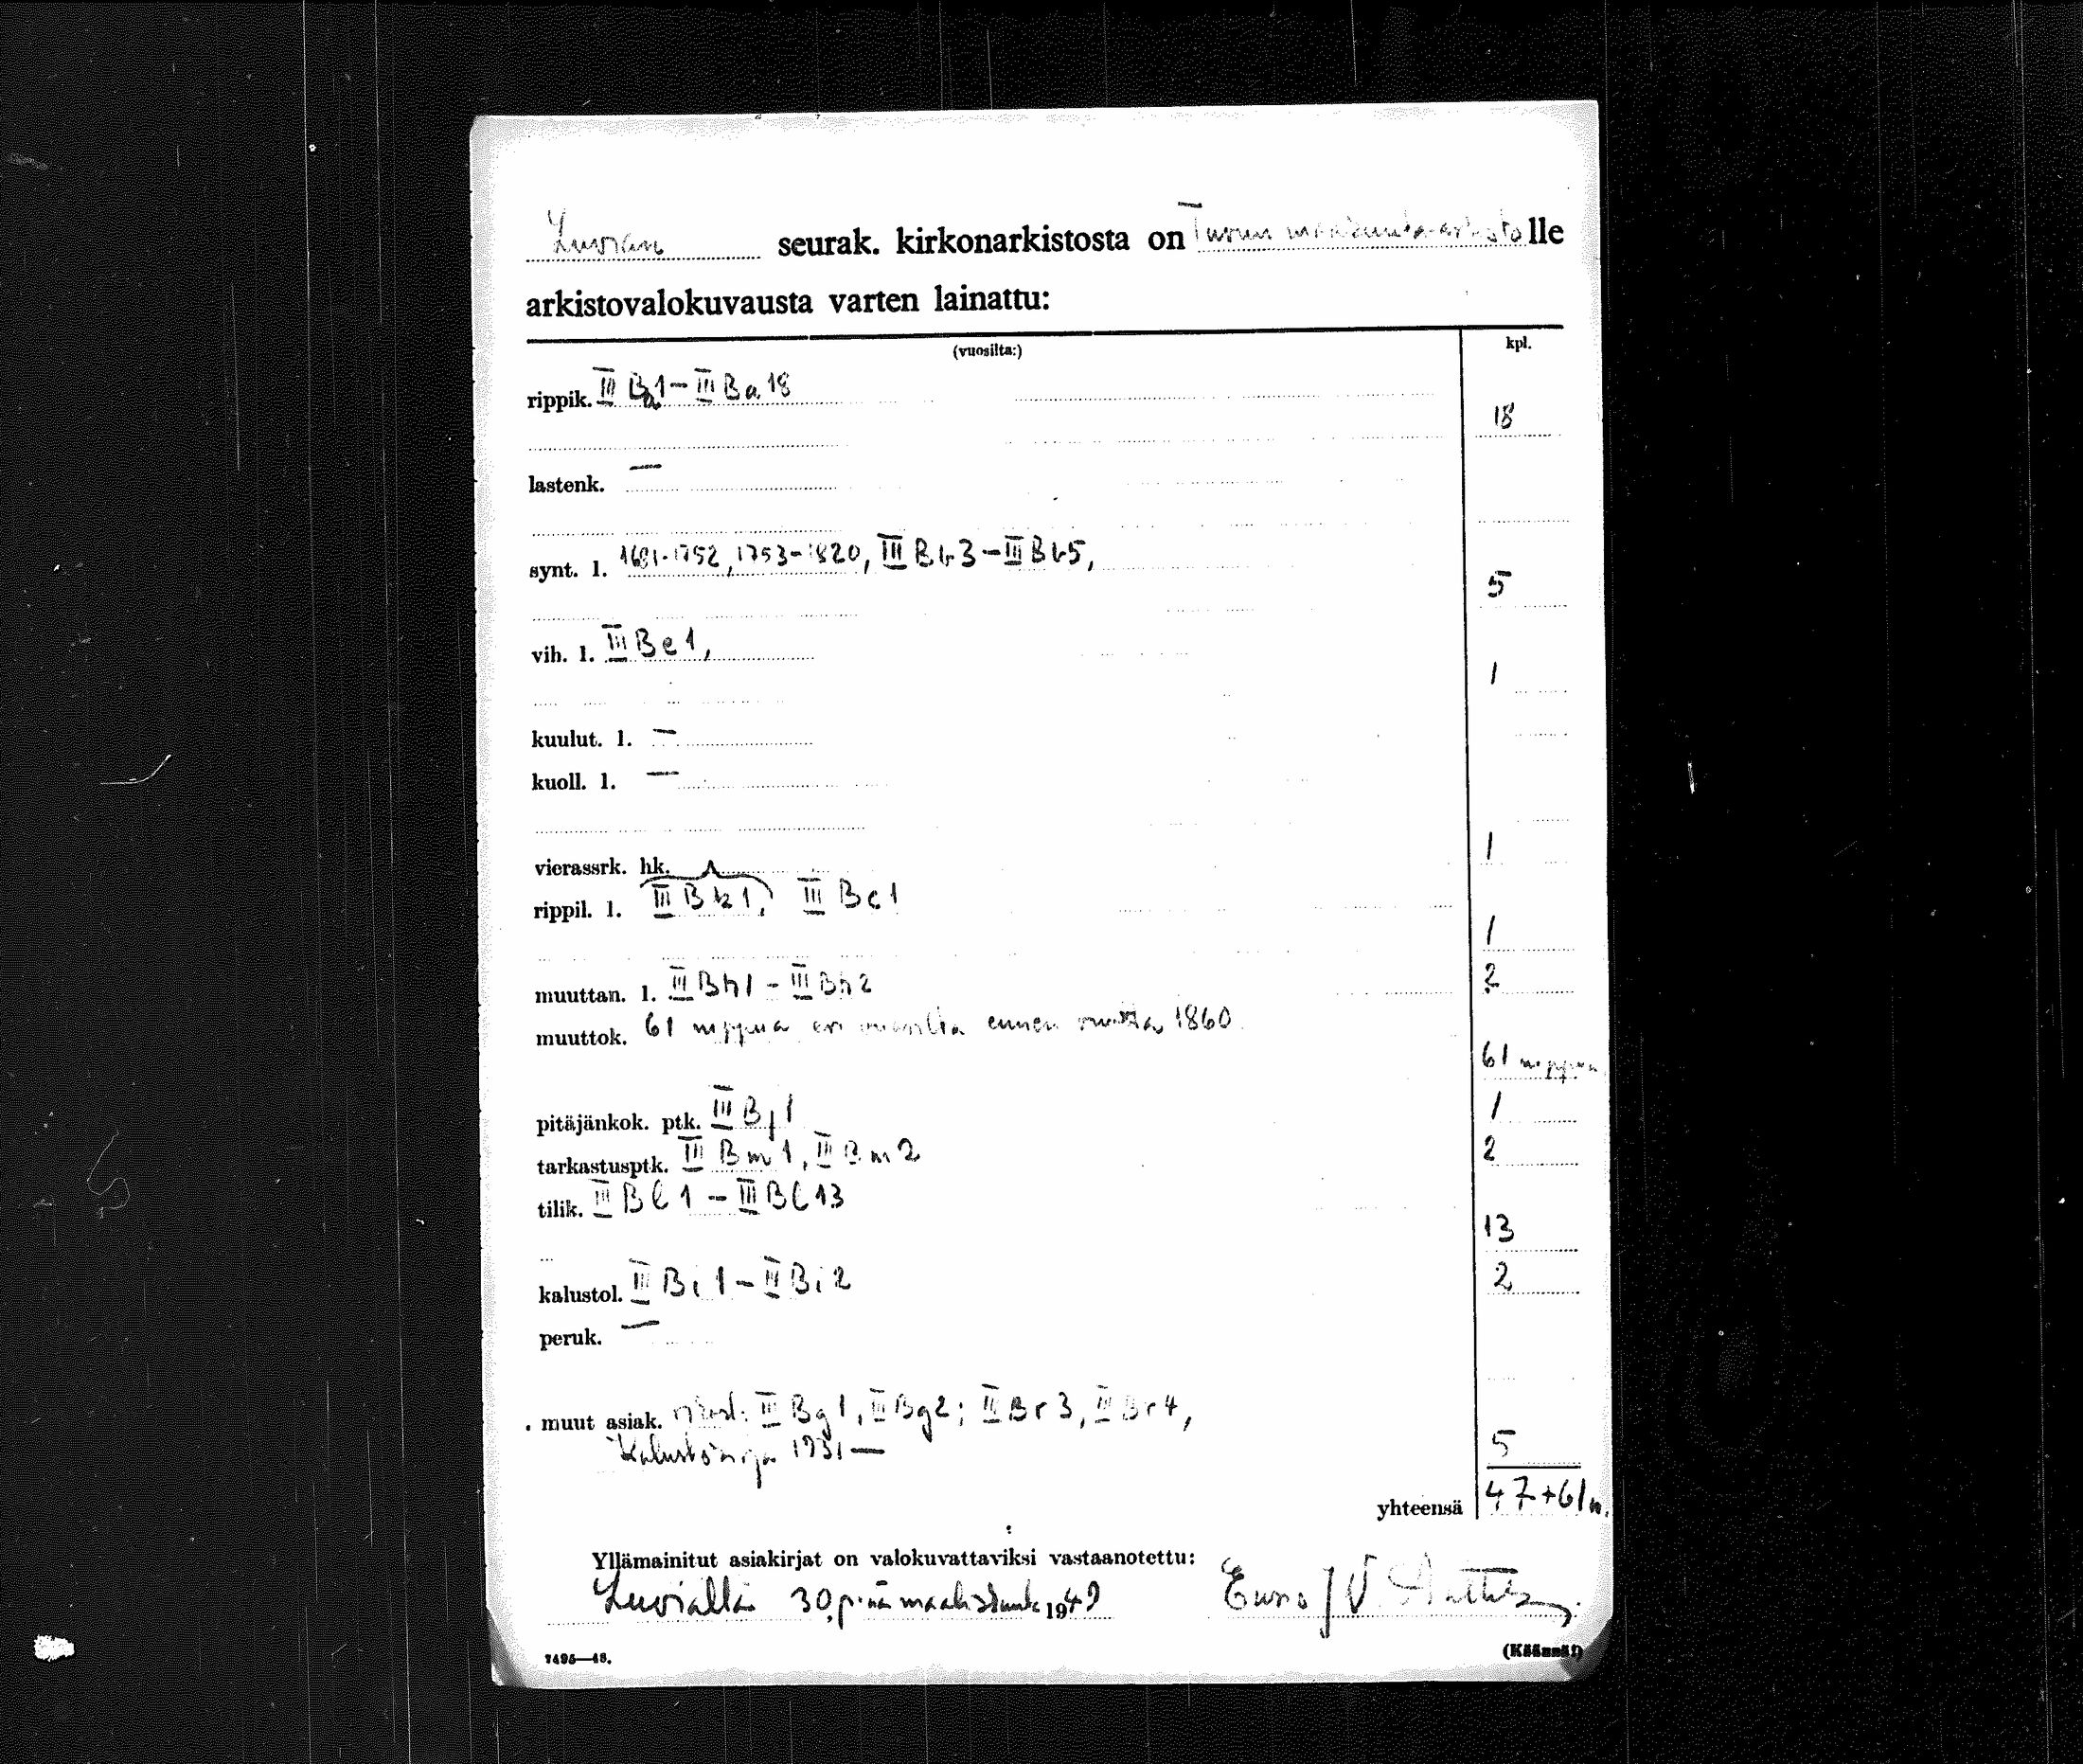 Luvian seurak. kirkonarkistosta on Turun maakunta-arkisto lle
arkistovalokuvausta varten lainattu:
(vuosilta:) kpl.
rippik. III Ba1 – III Ba 18 18
lastenk. —
synt. l. 1691-1752, 1753-1820, III Bb 3 – III Bb5, 5
vih. l. III Be 1, 1
kuulut. l. —
kuoll. l. —
vierassrk. hk. 1
rippil. l. III Bk 1, III Bc 1 1
muuttan. l. III Bh 1 - III Bh 2 2
muuttok. 61 nippua eri vuosilta ennen vuotta 1860. 61 nippua
pitäjänkok. ptk. III Bj 1 1
tarkastusptk. III Bm 1, III Bm 2 2
tilik. III Bl 1 – III Bl 13 13
kalustol. III Bi 1 – III Bi 2 2
peruk. —
muut asiak. III Bg 1, III Bg 2; III Br 3, III Br 4,
Kalustokirja 1731 — 5
yhteensä 47+61 n.
Yllämainitut asiakirjat on valokuvattaviksi vastaanotettu:
Luvialla 30 p:nä maaliskuuta 1949 Euno J V
7495—48. (Käännä!)